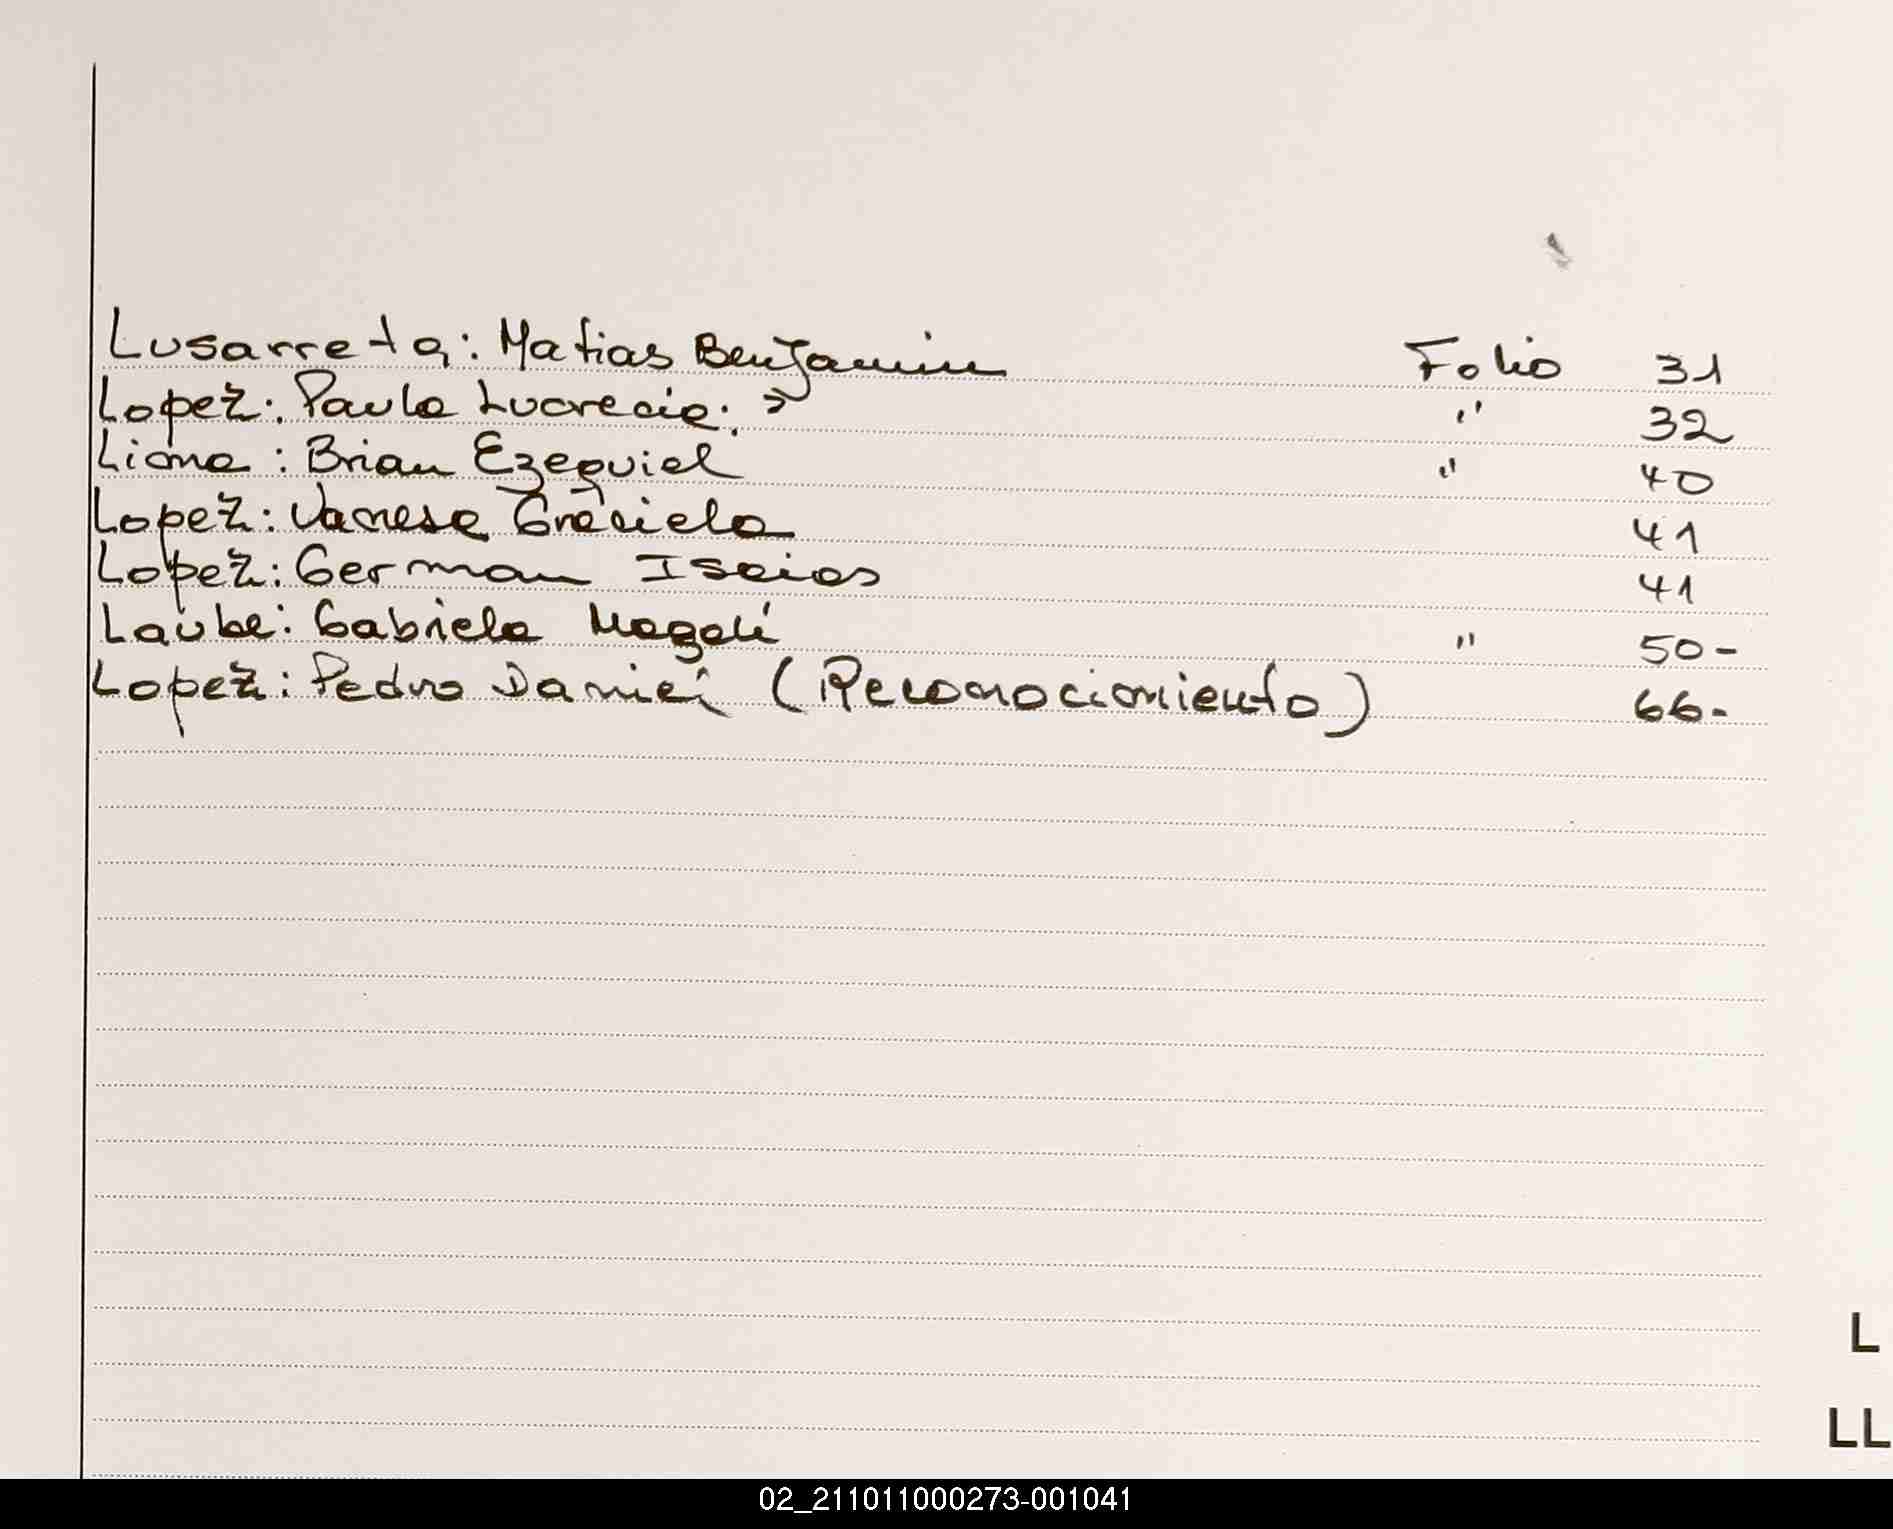 Lusarreta: Matias Benjamin Folio 31
Lopez: Paula Lucrecia. " 32
Liona: Brian Ezequiel " 40
Lopez: Vanesa Graciela 41
Lopez: German Isaias 41
Laube: Gabriela Magali " 50-
Lopez: Pedro Daniel (Reconocimiento) 66-
L
LL
02_211011000273-001041